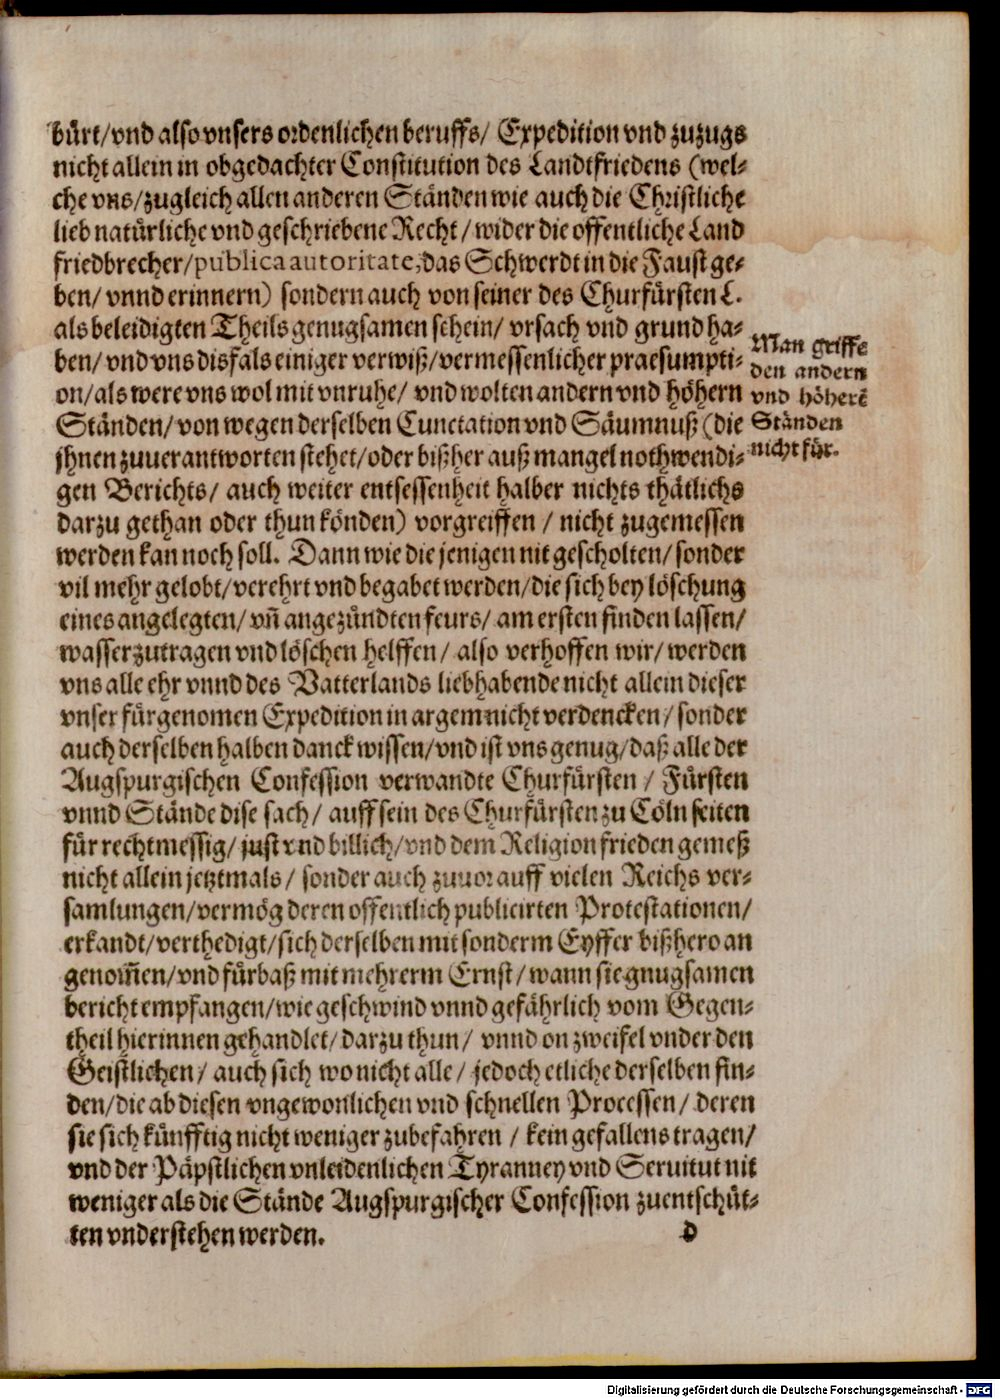 bürt/vnd also vnsers ordenlichen beruffs/ Expedition vnd zuzugs
nicht allein in obgedachter Constitution des Landtfriedens (wel-
che vns/zugleich allen anderen Ständen wie auch die Christliche
lieb natürliche vnd geschriebene Recht/wider die offentliche Land
friedbrecher/publica autoritate,das Schwerdt in die Faust ge-
ben/ vnnd erinnern) sondern auch von seiner des Churfürsten L.
als beleidigten Theils genugsamen schein/ vrsach vnd grund ha-
ben/ vnd vns disfals einiger verwiß/vermessenlicher praesumpti-
on/als were vns wol mit vnruhe/ vnd wolten andern vnd höhern
Ständen/von wegen derselben Cunctation vnd Säumnuß (die
jhnen zuuerantworten stehet/oder bißher auß mangel nothwendi-
gen Berichts/ auch weiter entsessenheit halber nichts thätlichs
darzu gethan oder thun könden) vorgreiffen / nicht zugemessen
werden kan noch soll. Dann wie die jenigen nit gescholten/sonder
vil mehr gelobt/verehrt vnd begabet werden/die sich bey löschung
eines angelegten/ vñ angezündten feurs/ am ersten finden lassen/
wasser zutragen vnd löschen helffen/ also verhoffen wir/ werden
vns alle ehr vnnd des Vatterlands liebhabende nicht allein dieser
vnser fürgenomen Expedition in argem nicht verdencken/sonder
auch derselben halben danck wissen/vnd ist vns genug/daß alle der
Augspurgischen Confession verwandte Churfürsten / Fürsten
vnnd Stände dise sach/ auff sein des Churfürsten zu Cöln seiten
für rechtmessig/ just vnd billich/vnd dem Religion frieden gemeß
nicht allein jetztmals/ sonder auch zuuor auff vielen Reichs ver-
samlungen/vermög deren offentlich publicirten Protestationen/
erkandt/verthedigt/sich derselben mit sonderm Eyffer bißhero an
genom̃en/vnd fürbaß mit mehrerm Ernst/wann sie gnugsamen
bericht empfangen/wie geschwind vnnd gefährlich vom Gegen-
theil hierinnen gehandlet/darzu thun/ vnnd on zweifel vnder den
Geistlichen/ auch sich wo nicht alle/ jedoch etliche derselben fin-
den/die ab diesen vngewonlichen vnd schnellen Processen/ deren
sie sich künfftig nicht weniger zubefahren / kein gefallens tragen/
vnd der Päpstlichen vnleidenlichen Tyranney vnd Seruitut nit
weniger als die Stände Augspurgischer Confession zuentschüt-
ten vnderstehen werden.
D
Man griffe
den andern
vnd höherẽ
Ständen
nicht für.
Digitalisierung gefördert durch die Deutsche Forschungsgemeinschaft - DFG